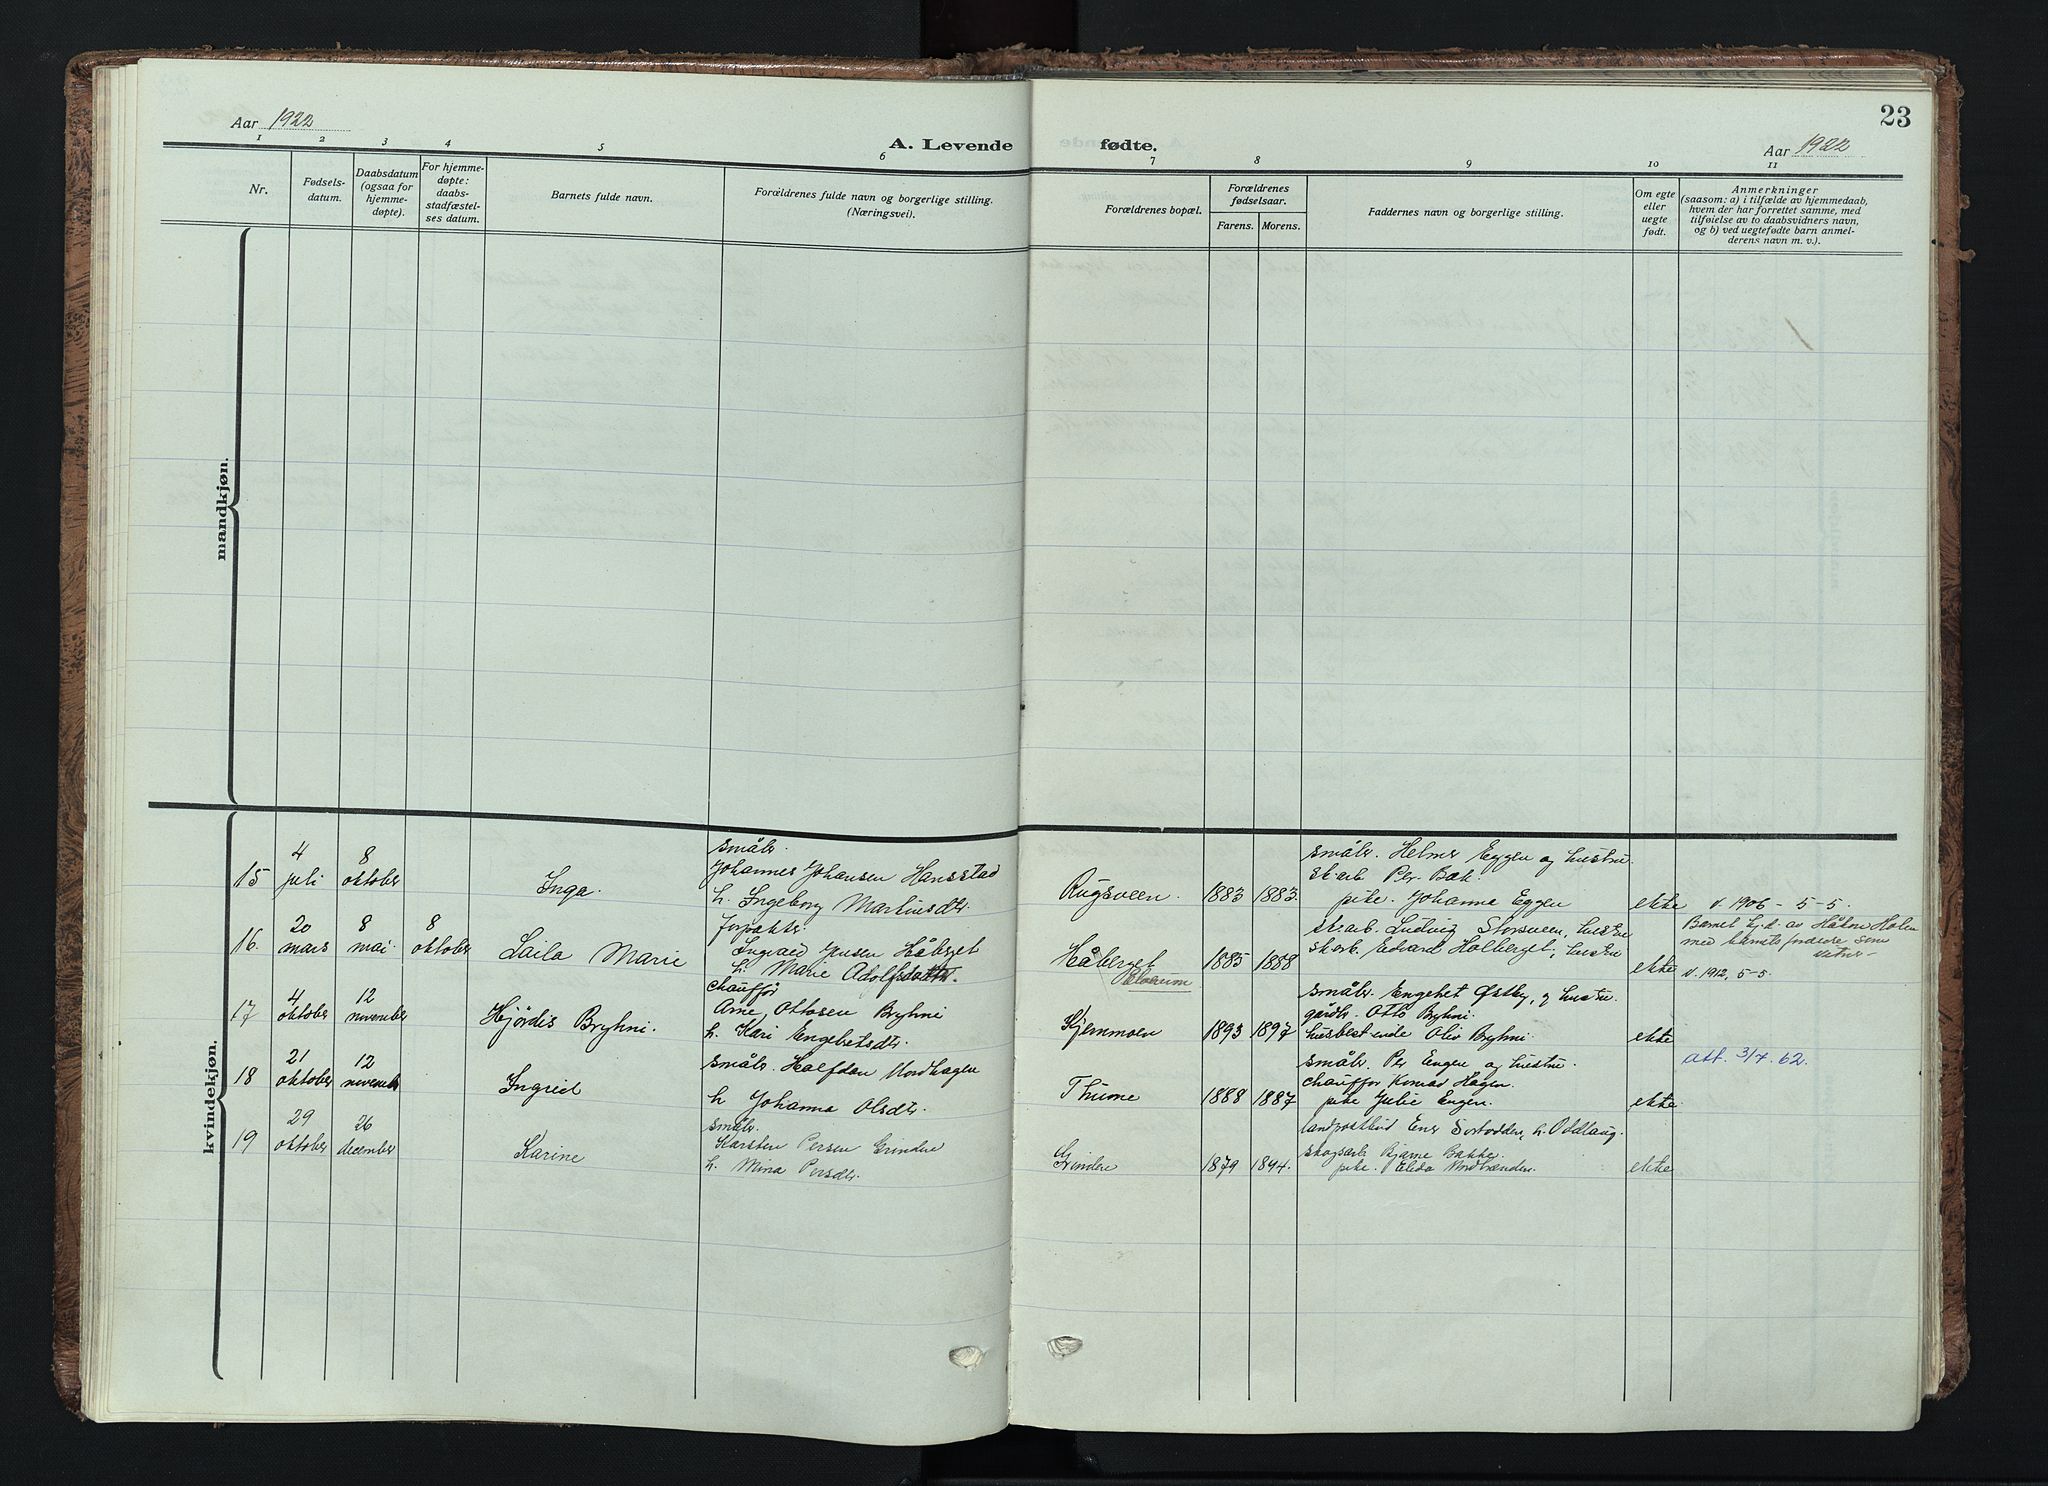 23
Aar 1922
A. Levende fødte.
Aar 1922
1 2 3 4 5 6 7 8 9 10 11
Nr.
Fødsels-
datum.
Daabsdatum
(ogsaa for
hjemme-
døpte).
For hjemme-
døpte:
daabs-
stadfæstel-
ses datum.
Barnets fulde navn.
Forældrenes fulde navn og borgerlige stilling.
(Næringsvei).
Forældrenes bopæl.
Forældrenes
fødselsaar.
Farens. Morens.
Faddernes navn og borgerlige stilling.
Om egte
eller
uegte
født.
Anmerkninger
(saasom: a) i tilfælde av hjemmedaab,
hvem der har forrettet samme, med
tilføielse av to daabsvidners navn,
og b) ved uegtefødte barn anmel-
derens navn m. v.).
mandkjøn.
kvindekjøn.
15
4
juli
8
oktober
Inga.
småbr.
Johannes Johansen Hansstad
h. Ingeborg Martinsdtr.
Rugsveen.
1883
1883.
småbr. Helmer Eggen og hustru.
sk.arb. Per Bæk.
pike. Johanna Eggen
ekte
v. 1906 - 5-5.
16.
20
mars
8
mai.
8
oktober
Laila Marie
forpakter
Ingvald Jensen Håberget
h. Marie Adolfsdatter.
Håberget
Elverum
1885
1888
sk.arb. Ludvig Storsveen, hustru
sk.arb. Edvard Holberget, hustru
ekte
Barnet hj.d. av Håkon Holen
med barnets foreldre som
vitner -
v. 1912, 5-5.
17
4
oktober
12
november
Hjørdis Bryhni.
chauffør
Arne Ottosen Bryhni
h. Kari Engebretsdtr.
Kjernmoen
1893
1897
småbr. Engebret Østby, og hustru.
gårdbr. Otto Bryhni.
husbestyrende Oliv Bryhni.
ekte
18
21
oktober
12
november
Ingrid
småbr. Halfdan Nordhagen
h Johanna Olsdtr.
Thune
1888
1887
småbr. Per Engen og hustru.
chauffør Konrad Hagen.
pike Julie Engen.
ekte.
att. 3/7. 62.
19
29
oktober
26
december
Karine
småbr.
Karsten Persen Grindere
h. Mina Persdtr.
Grindere
1879
1894.
landpostbud Ener Sortodden, h. Oddlaug.
skogsarb Bjarne Bakke.
pike. Elda Nordstranden.
ekte